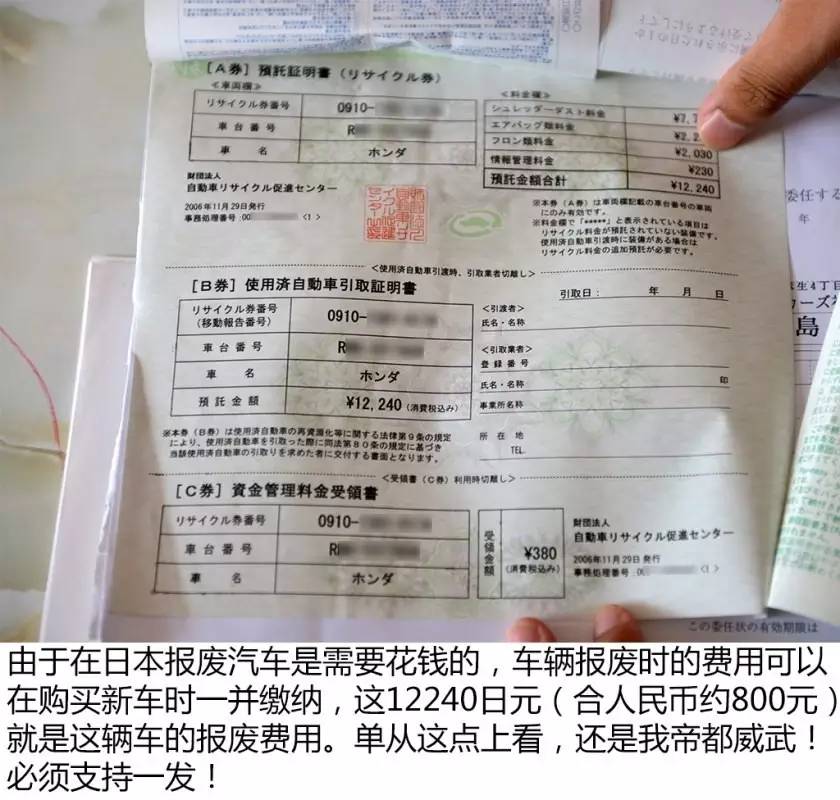 [A券] 預託証明書(リサイクル券)
<車両欄>
リサイクル券番号 0910-
車台番号 R
車名 ホンダ
<料金欄>
シュレッダーダスト料金 ¥7,7
エアバッグ類料金 ¥2,2
フロン類料金 ¥2,030
情報管理料金 ¥230
預託金額合計 ¥12,240
財団法人
自動車リサイクル促進センター
2006年11月29日発行
事務処理番号:00 <1>
※本券(A券)は車両欄記載の車台番号の車両
にのみ有効です。
※料金欄で「*****」と表示されている項目は
リサイクル料金が預託されていない装備です。
使用済自動車引渡時に装備がある場合は
リサイクル料金の追加預託が必要です。
<使用済自動車引渡時、引取業者切離し>
[B券] 使用済自動車引取証明書
引取日: 年 月 日
リサイクル券番号
(移動報告番号) 0910-
車台番号 R
車名 ホンダ
預託金額 ¥12,240(消費税込み)
<引渡者>
氏名・名称
<引取業者>
登録番号
氏名・名称 印
事業所名称
所在地
TEL
※本券(B券)は使用済自動車の再資源化等に関する法律第9条の規定
により、使用済自動車を引取った際に同法第80条の規定に基づき
当該使用済自動車の引取りを求めた者に交付する書面となります。
<受領書(C券)利用時切離し>
[C券] 資金管理料金受領書
リサイクル券番号 0910-
車台番号 R
車名 ホンダ
受領金額 ¥380
(消費税込み)
財団法人
自動車リサイクル促進センター
2006年11月29日発行
事務処理番号:0 <1>
委任する
年
生4丁目
カーズ
島
この委任状の有効期限は
由于在日本报废汽车是需要花钱的，车辆报废时的费用可以
在购买新车时一并缴纳，这12240日元（合人民币约800元）
就是这辆车的报废费用。单从这点上看，还是我帝都威武！
必须支持一发！